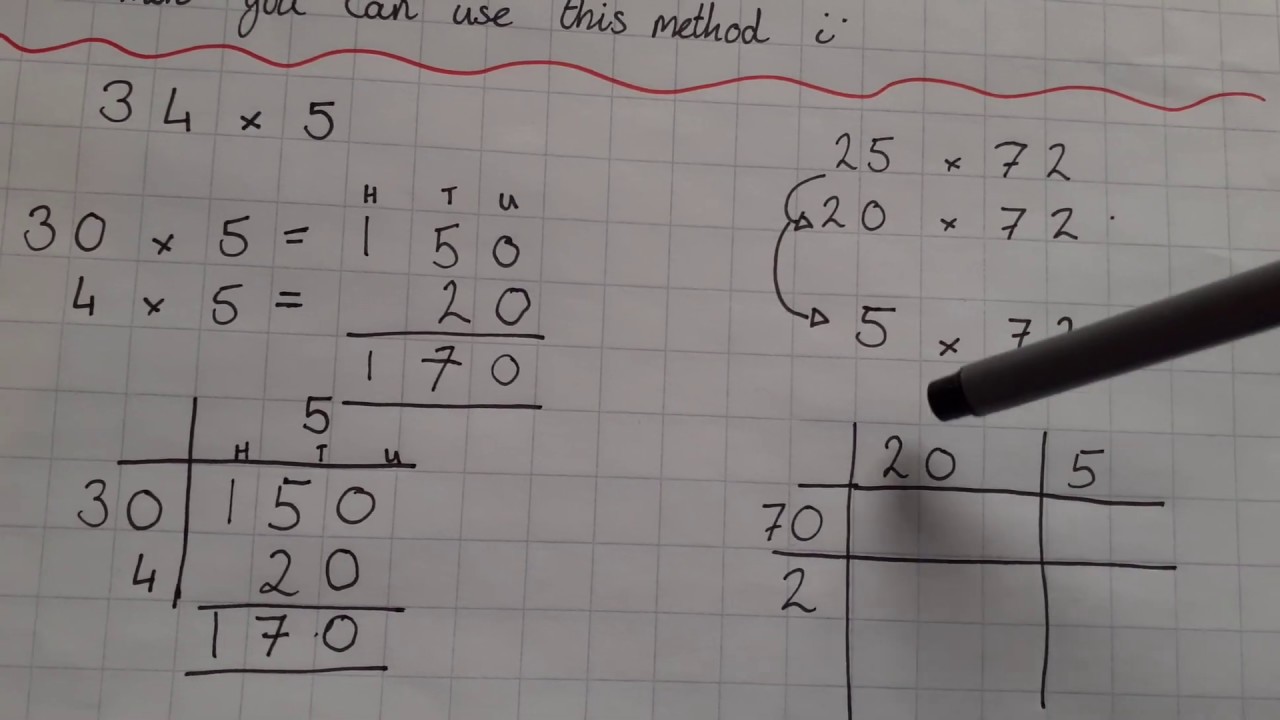 you can use this method
34 × 5
H T U
30 × 5 = 150
4 × 5 = 20
170
5
H T U
30 150
4 20
170
25 × 72
20 × 72
5 × 72
20 5
70
2